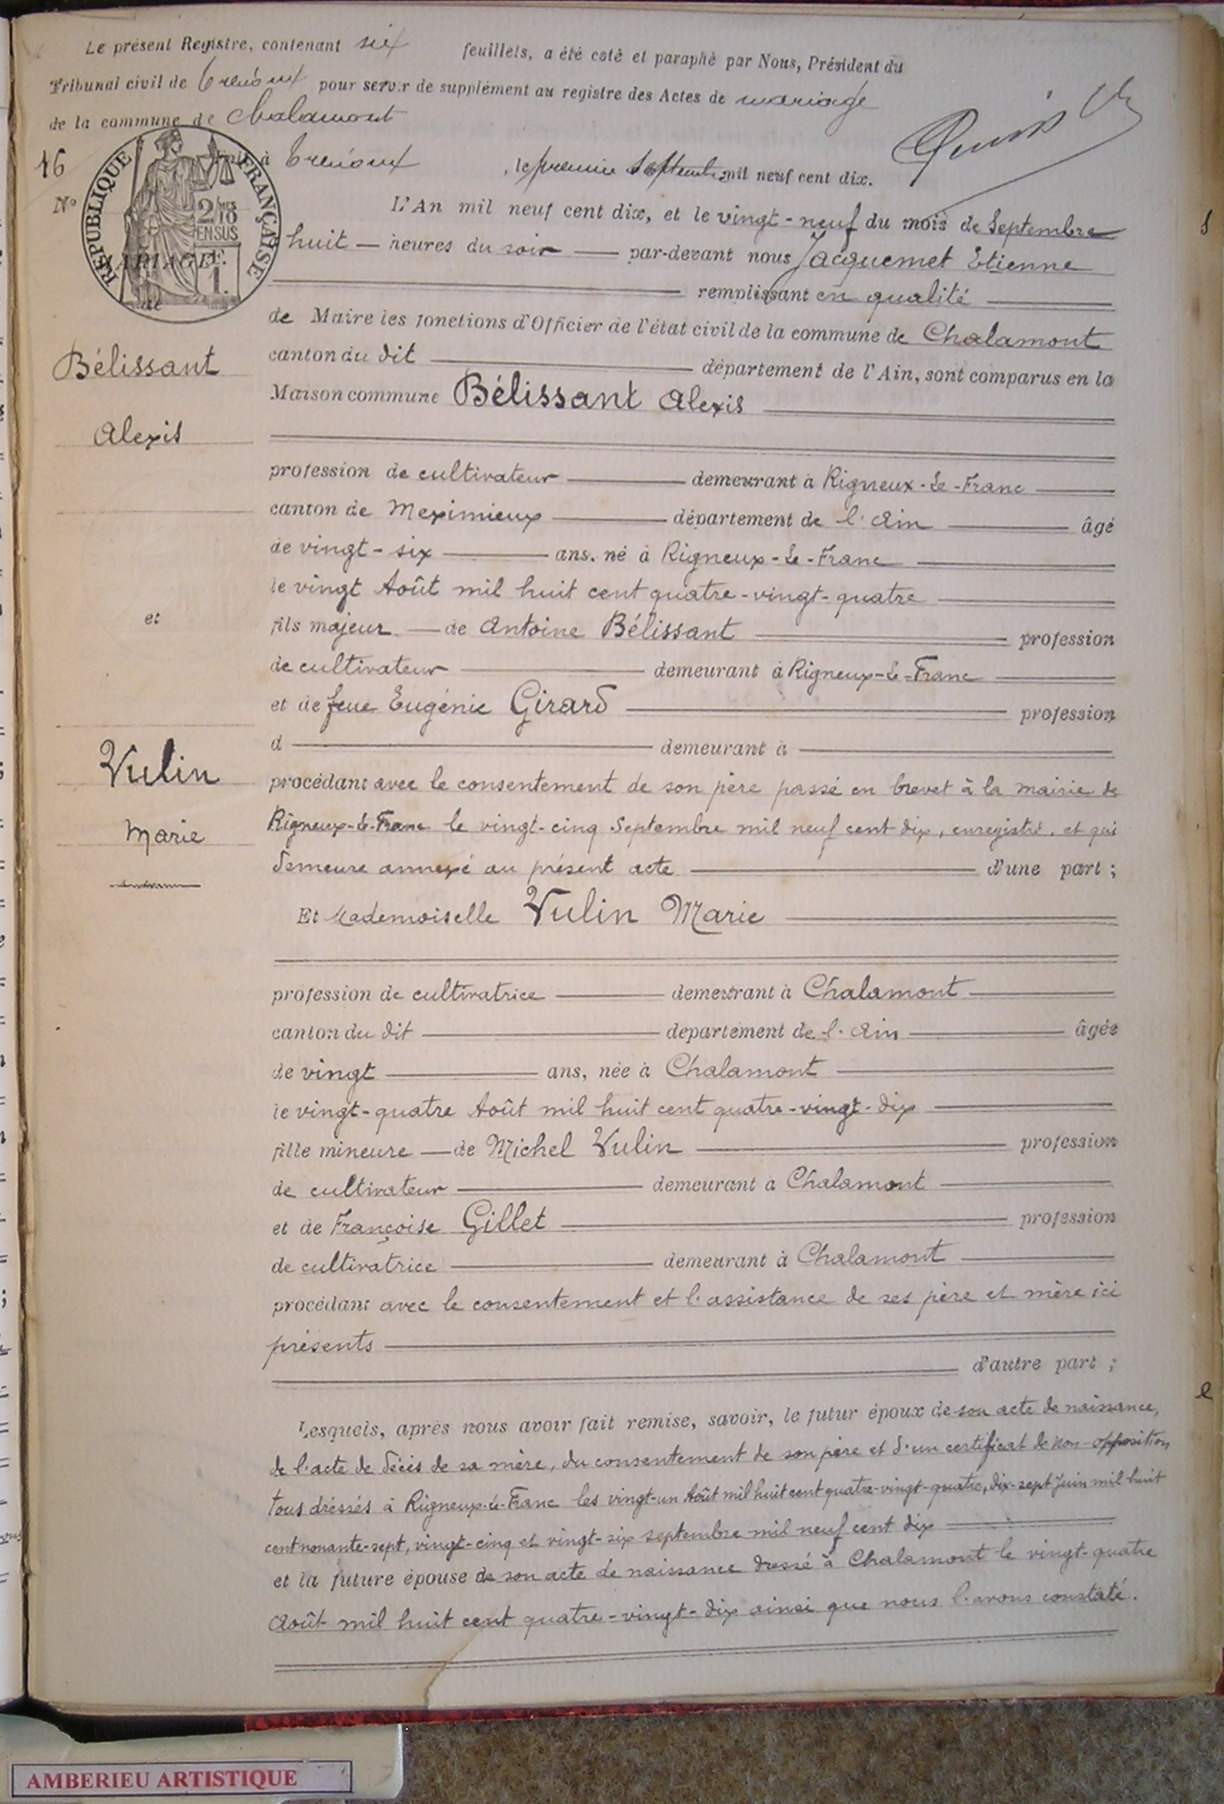 Le présent Registre, contenant six feuillets, a été coté et paraphé par Nous, Président du
Tribunal civil de Trévoux pour servir de supplément au registre des Actes de mariage
de la commune de Chalamont
16
à Trévoux, le premier Septembre mil neuf cent dix.
N°
RÉPUBLIQUE FRANÇAISE
2/10
EN SUS
1 F.
MARIAGE
de
L'An mil neuf cent dix, et le vingt-neuf du mois de Septembre
huit heures du soir par-devant nous Jacquemet Etienne
remplissant en qualité
de Maire les fonctions d'Officier de l'état civil de la commune de Chalamont
canton du dit département de l'Ain, sont comparus en la
Maison commune Bélissant Alexis
Bélissant
Alexis
et
Vulin
Marie
profession de cultivateur demeurant à Rigneux-le-Franc
canton de Meximieux département de l'Ain âgé
de vingt-six ans, né à Rigneux-le-Franc
le vingt Août mil huit cent quatre-vingt-quatre
fils majeur de Antoine Bélissant profession
de cultivateur demeurant à Rigneux-le-Franc
et de feue Eugénie Girard profession
d demeurant à
procédant avec le consentement de son père passé en brevet à la mairie de
Rigneux-le-Franc le vingt-cinq Septembre mil neuf cent dix, enregistré, et qui
demeure annexé au présent acte d'une part ;
Et Mademoiselle Vulin Marie
profession de cultivatrice demeurant à Chalamont
canton du dit département de l'Ain âgée
de vingt ans, née à Chalamont
le vingt-quatre Août mil huit cent quatre-vingt-dix
fille mineure de Michel Vulin profession
de cultivateur demeurant à Chalamont
et de Françoise Gillet profession
de cultivatrice demeurant à Chalamont
procédant avec le consentement et l'assistance de ses père et mère ici
présents
d'autre part ;
Lesquels, après nous avoir fait remise, savoir, le futur époux de son acte de naissance,
de l'acte de décès de sa mère, du consentement de son père et d'un certificat de non-opposition
tous dressés à Rigneux-le-Franc les vingt-un Août mil huit cent quatre-vingt-quatre, dix-sept Juin mil huit
cent nonante-sept, vingt-cinq et vingt-six septembre mil neuf cent dix
et la future épouse de son acte de naissance dressé à Chalamont le vingt-quatre
Août mil huit cent quatre-vingt-dix ainsi que nous l'avons constaté.
AMBERIEU ARTISTIQUE